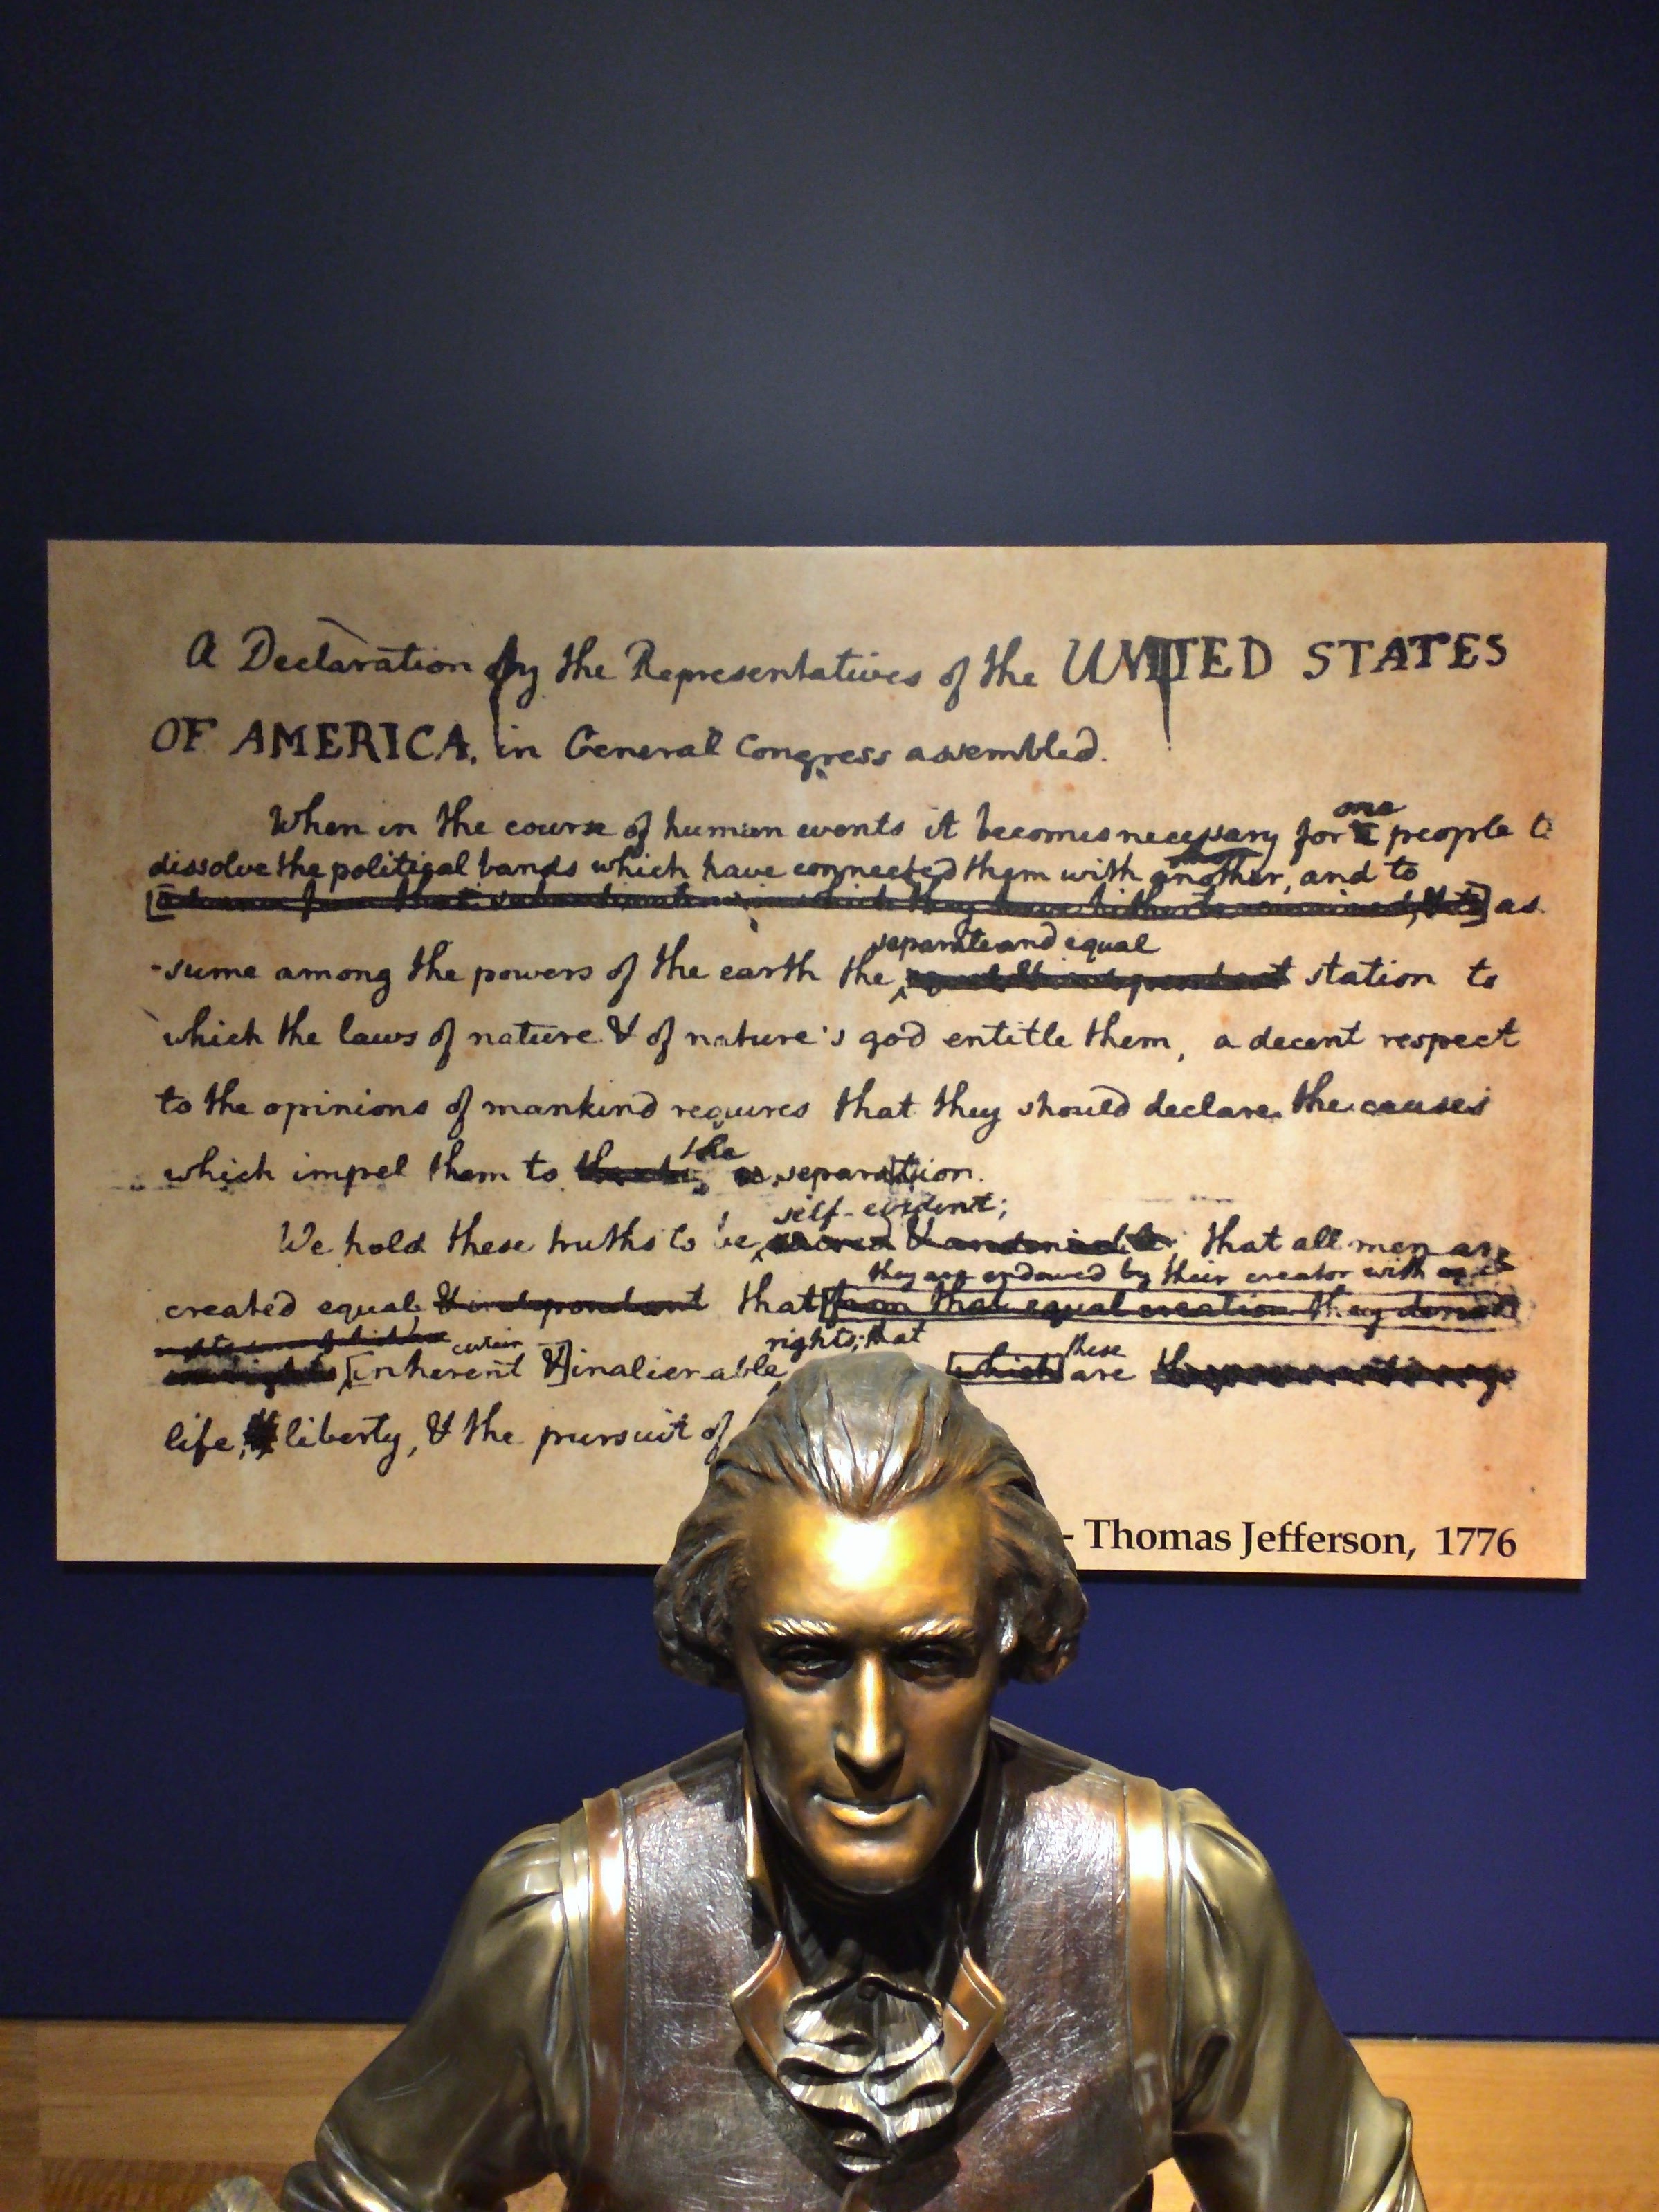 A Declaration by the Representatives of the UNITED STATES
OF AMERICA, in General Congress assembled.
When in the course of human events it becomes necessary for one people to
dissolve the political bands which have connected them with another, and to
as
separate and equal
-sume among the powers of the earth the station to
which the laws of nature & of nature's god entitle them, a decent respect
to the opinions of mankind requires that they should declare the causes
the
which impel them to separation.
self-evident;
We hold these truths to be that all men are
they are endowed by their creator with
created equal & independant that [from that equal creation they derive
certain rights; that these
[inherent &] inalienable [which] are
life, liberty, & the pursuit of
- Thomas Jefferson, 1776